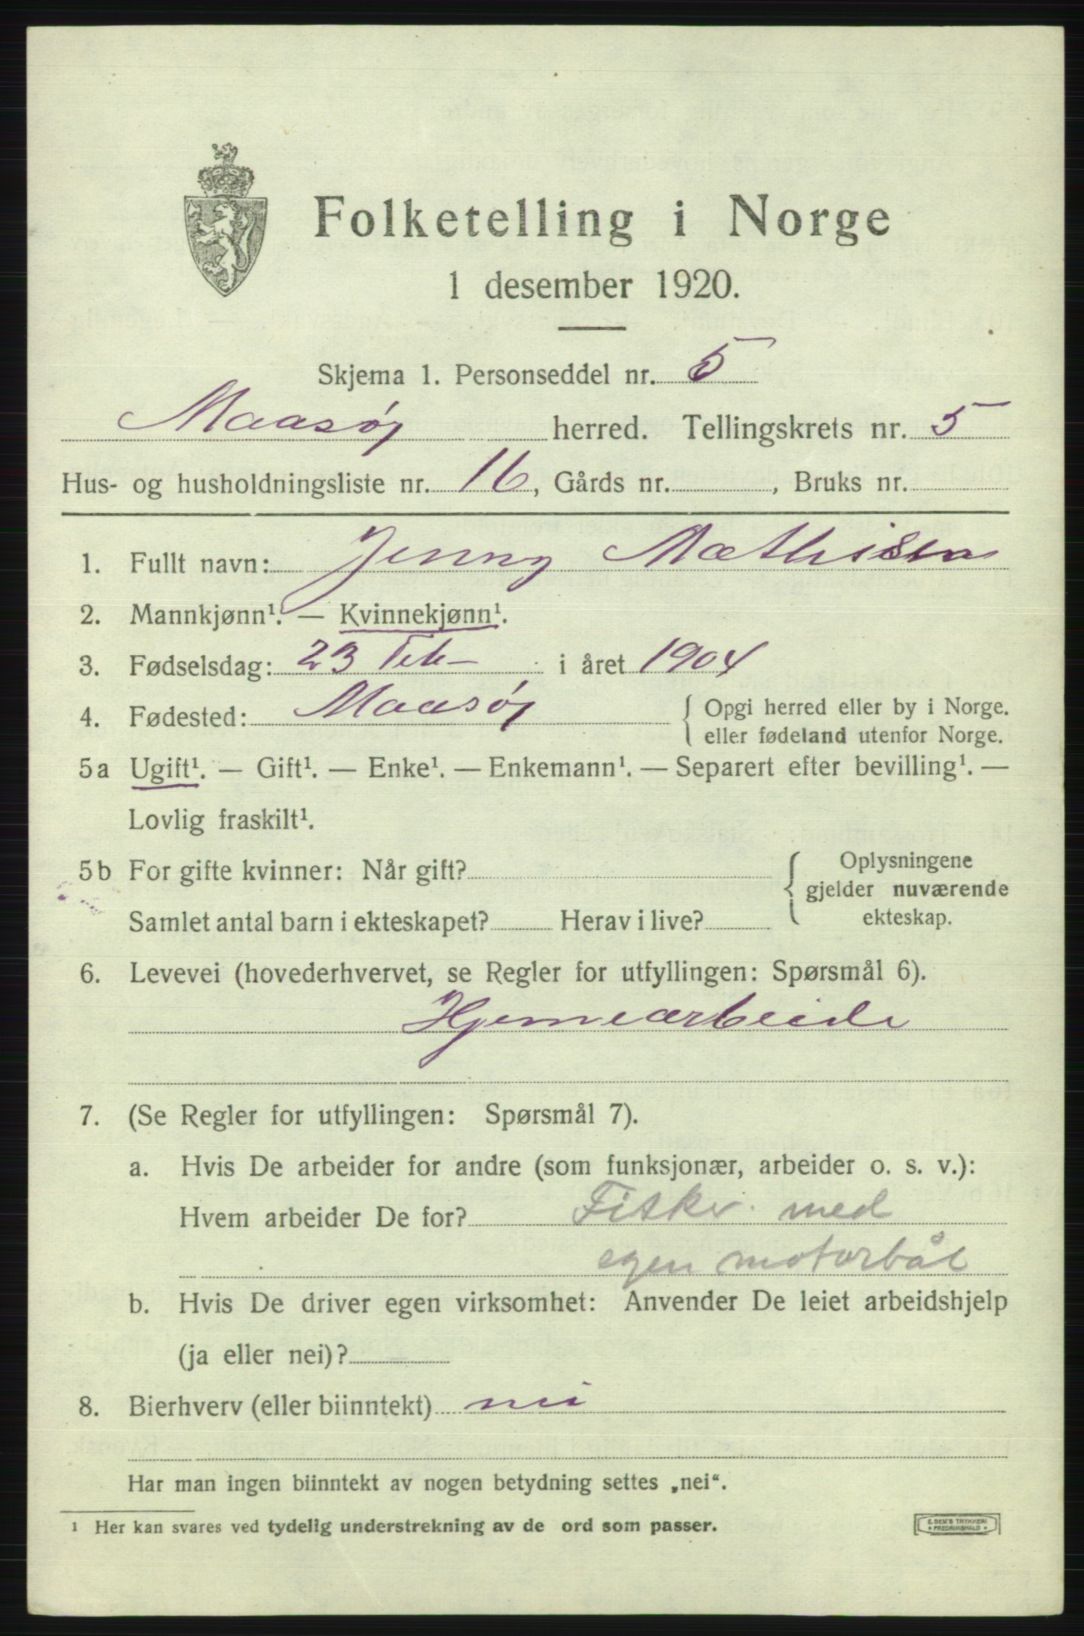 Folketelling i Norge
1 desember 1920.
Skjema 1. Personseddel nr. 5
Maasøy herred. Tellingskrets nr. 5
Hus- og husholdningsliste nr. 16, Gårds nr. , Bruks nr.
1. Fullt navn: Jenny Mathisen
2. Mannkjønn¹. — Kvinnekjønn¹.
3. Fødselsdag: 23 Feb- i året 1904
4. Fødested: Maasøy { Opgi herred eller by i Norge.
eller fødeland utenfor Norge.
5a Ugift¹. — Gift¹. — Enke¹. — Enkemann¹. — Separert efter bevilling¹. —
Lovlig fraskilt¹.
5b For gifte kvinner: Når gift?
Samlet antal barn i ekteskapet? Herav i live?
{ Oplysningene
gjelder nuværende
ekteskap.
6. Levevei (hovederhvervet, se Regler for utfyllingen: Spørsmål 6).
Hjemmearbeide
7. (Se Regler for utfyllingen: Spørsmål 7).
a. Hvis De arbeider for andre (som funksjonær, arbeider o. s. v.):
Hvem arbeider De for? Fisker med
egen motorbåt
b. Hvis De driver egen virksomhet: Anvender De leiet arbeidshjelp
(ja eller nei)?
8. Bierhverv (eller biinntekt) nei
Har man ingen biinntekt av nogen betydning settes „nei“.
¹ Her kan svares ved tydelig understrekning av de ord som passer.